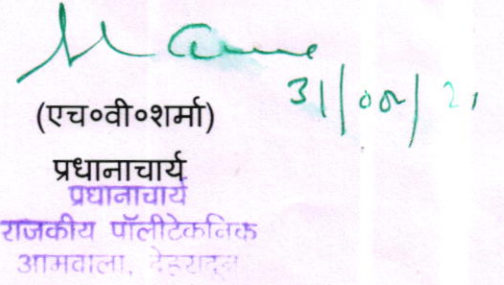 31/08/21
(एच०वी०शर्मा)
प्रधानाचार्य
प्रधानाचार्य
राजकीय पॉलीटेकनिक
आमवाला, देहरादून